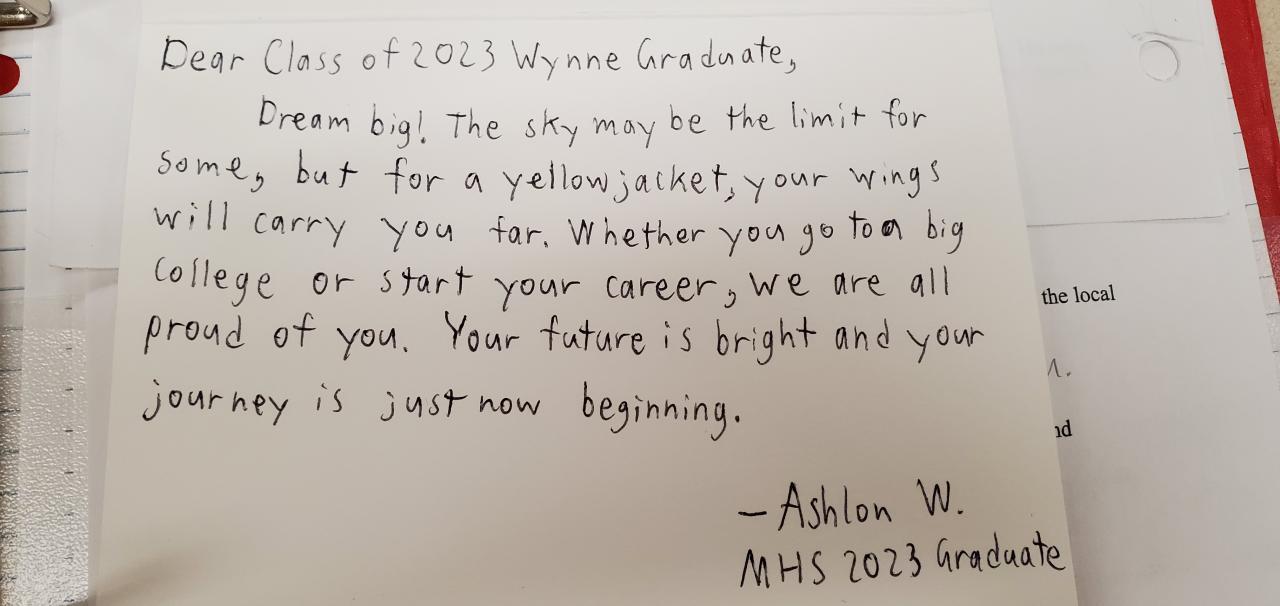 Dear Class of 2023 Wynne Graduate,
Dream big! The sky may be the limit for
some, but for a yellowjacket, your wings
will carry you far. Whether you go to a big
College or start your career, we are all
proud of you. Your future is bright and your
journey is just now beginning.
—Ashlon W.
MHS 2023 Graduate
the local